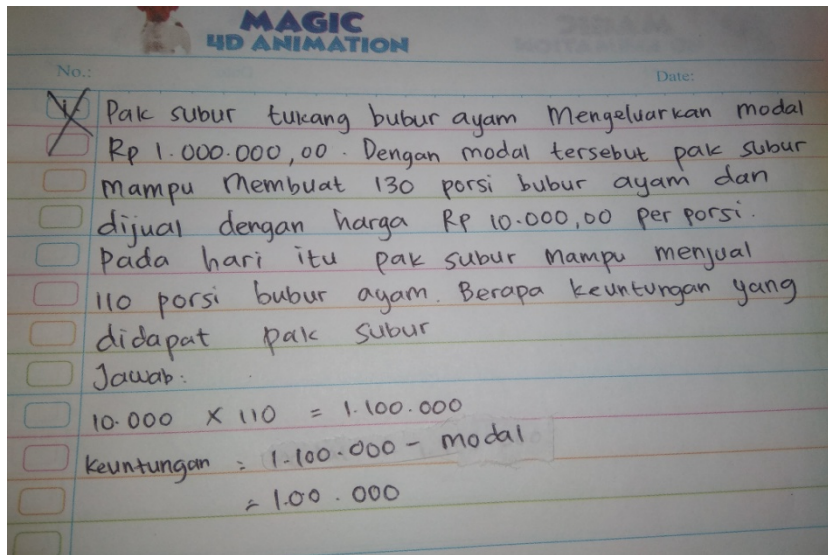 MAGIC
4D ANIMATION
No.: Date:
1. Pak subur tukang bubur ayam Mengeluarkan modal
Rp 1.000.000,00. Dengan modal tersebut pak subur
mampu Membuat 130 porsi bubur ayam dan
dijual dengan harga Rp 10.000,00 per porsi.
Pada hari itu pak subur mampu menjual
110 porsi bubur ayam. Berapa keuntungan yang
didapat pak subur
Jawab:
10.000 x 110 = 1.100.000
keuntungan = 1.100.000 - modal
= 1.00.000